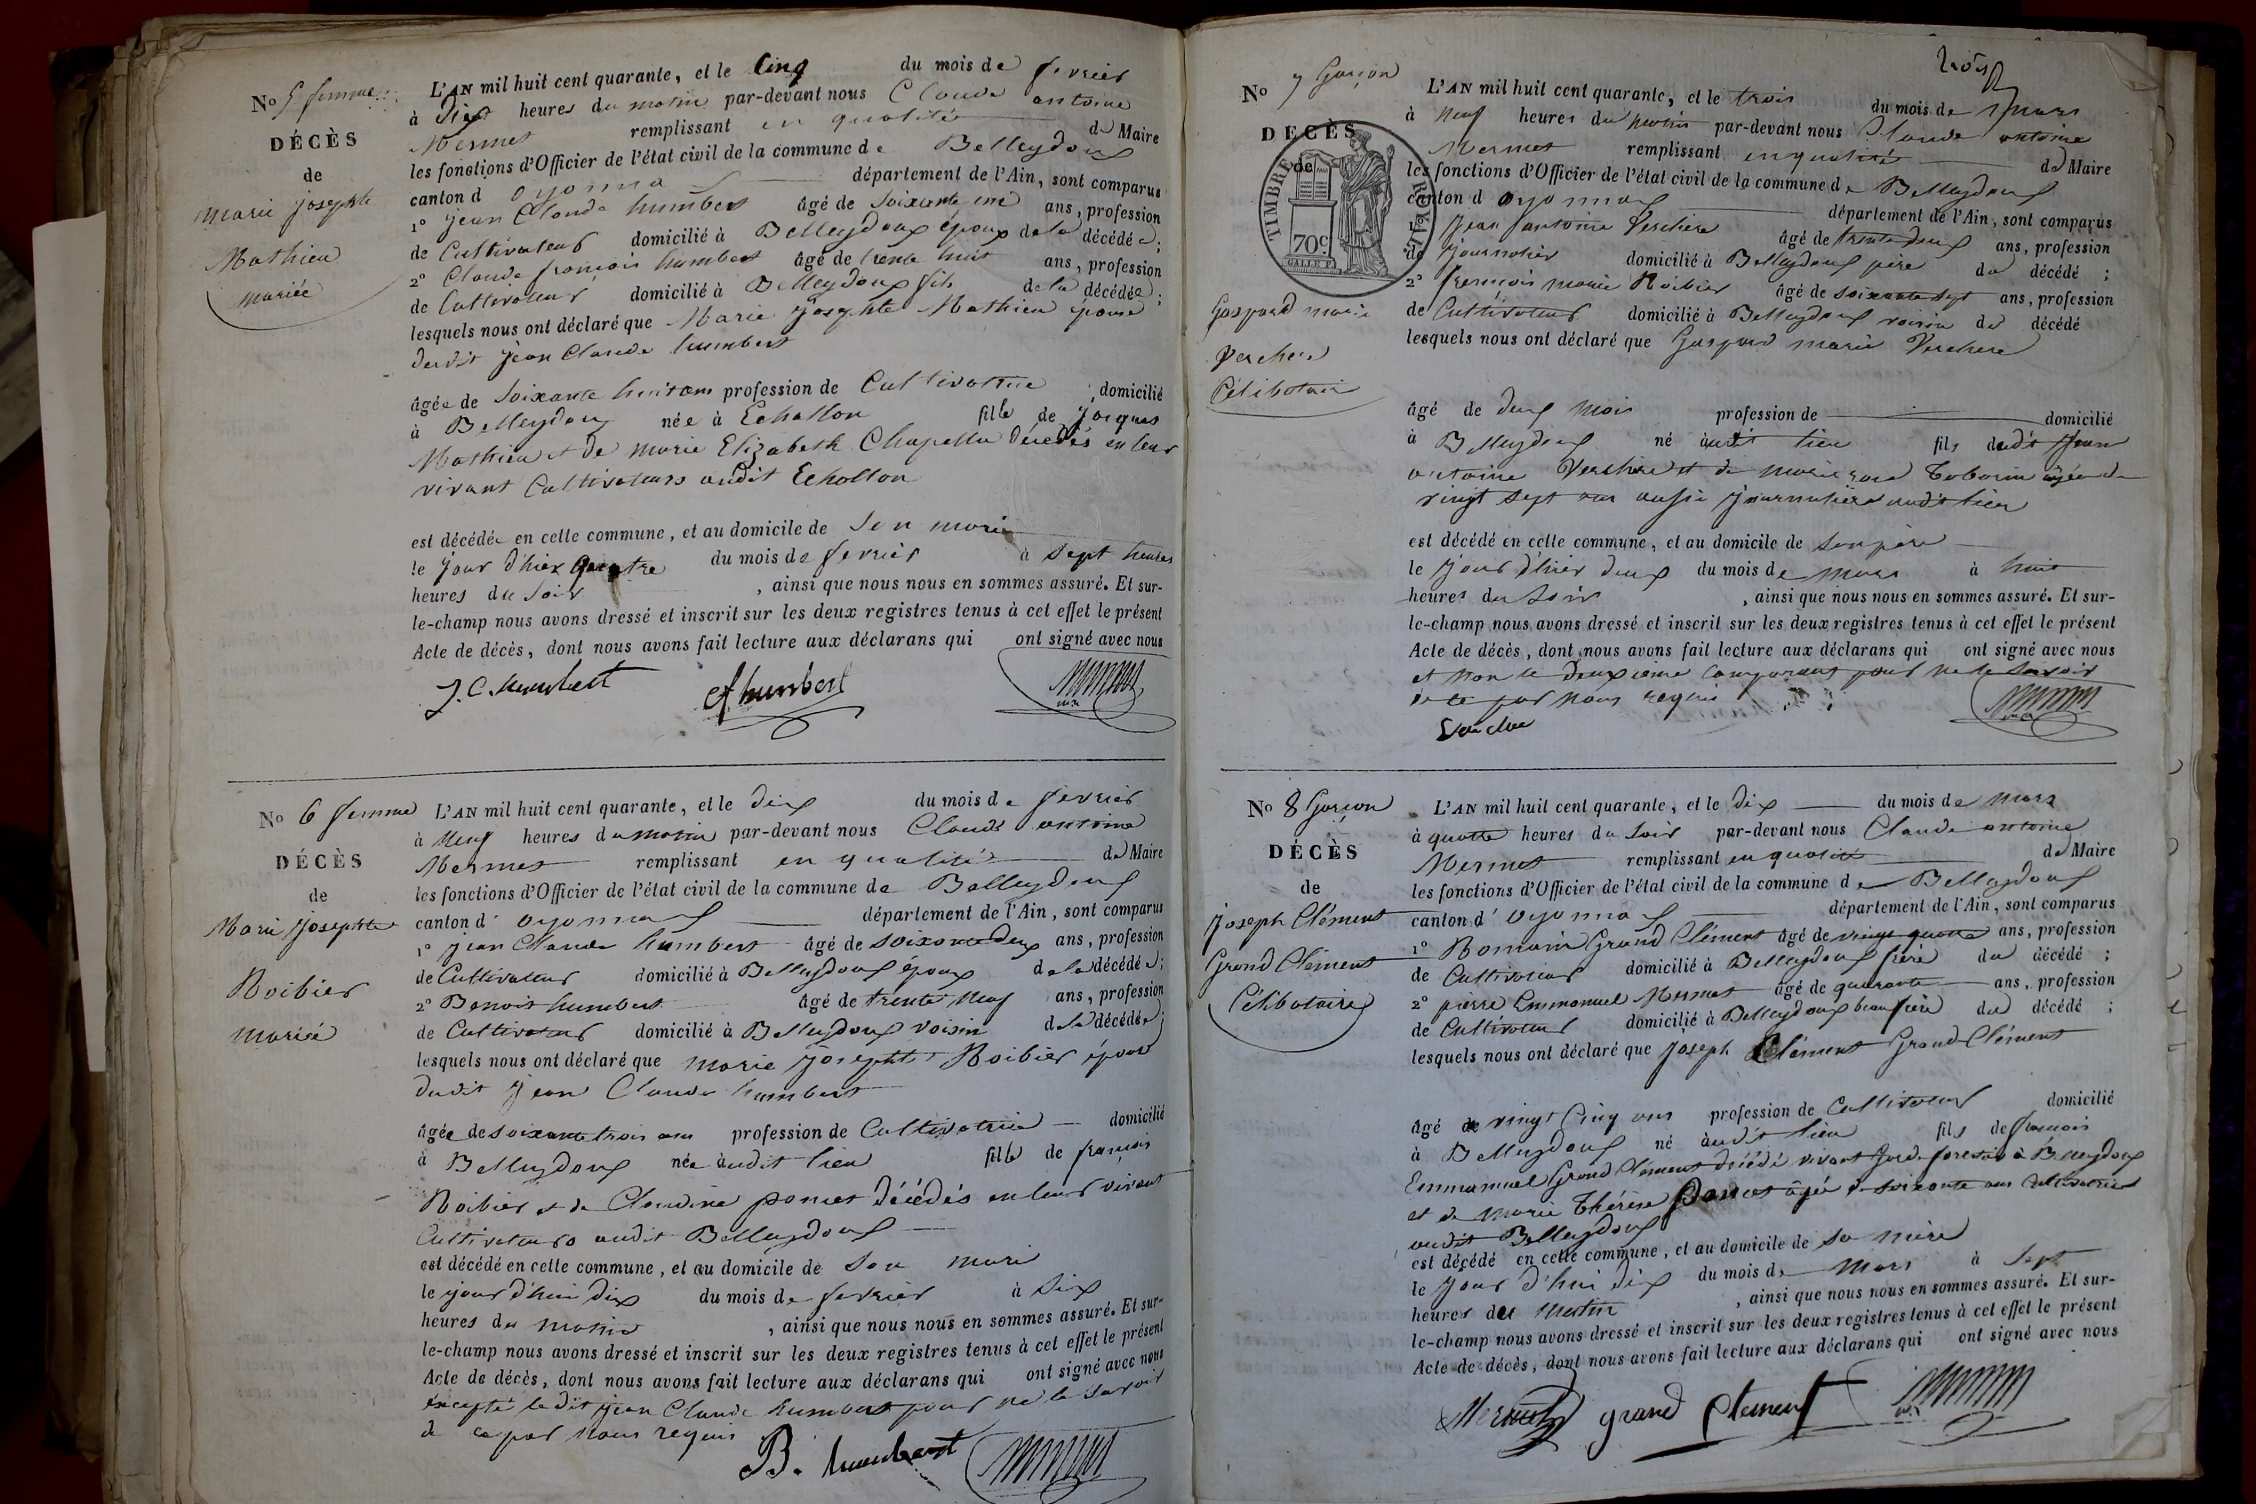 No 5 femme
DÉCÈS
de
Marie Josephte
Mathieu
mariée
L'AN mil huit cent quarante, et le Cinq du mois de fevrier
à Dix heures du matin par-devant nous Claude antoine
Mermet remplissant en qualité de Maire
les fonctions d'Officier de l'état civil de la commune de Belleydoux
canton d oyonnax département de l'Ain, sont comparus
1o Jean Claude humbert âgé de soixante une ans, profession
de Cultivateur domicilié à Belleydoux époux de la décédée;
2o Claude françois humbert âgé de trente huit ans, profession
de Cultivateur domicilié à Belleydoux fils de la décédée;
lesquels nous ont déclaré que Marie Josephte Mathieu épouse
dudit Jean Claude humbert
âgée de Soixante huit ans profession de Cultivatrice domicilié
à Belleydoux née à Echallon fille de Jacques
Mathieu et de marie Elizabeth Chapella décédés en leur
vivant Cultivateurs audit Echollon
est décédée en cette commune, et au domicile de son mari
le jour d'hier quatre du mois de fevrier à sept heures
heures du soir, ainsi que nous nous en sommes assuré. Et sur-
le-champ nous avons dressé et inscrit sur les deux registres tenus à cet effet le présent
Acte de décès, dont nous avons fait lecture aux déclarans qui ont signé avec nous
J. C. humbert Cf humbert
No 6 femme
DÉCÈS
de
Marie Josephte
Roibier
mariée
L'AN mil huit cent quarante, et le dix du mois de fevrier
à neuf heures du matin par-devant nous Claude antoine
Mermet remplissant en qualité de Maire
les fonctions d'Officier de l'état civil de la commune de Belleydoux
canton d' oyonnax département de l'Ain, sont comparus
1o Jean Claude humbert âgé de soixante deux ans, profession
de Cultivateur domicilié à Belleydoux époux de la décédée;
2o Benoit humbert âgé de trente neuf ans, profession
de Cultivateur domicilié à Belleydoux voisin de la décédée;
lesquels nous ont déclaré que marie Josephte Roibier épouse
dudit Jean Claude humbert
âgée de soixante trois ans profession de Cultivatrice domicilié
à Belleydoux née audit lieu fille de françois
Roibier et de Claudine poncet décédés en leur vivant
Cultivateurs audit Belleydoux
est décédé en cette commune, et au domicile de son mari
le jour d'hui dix du mois de fevrier à six
heures du matin, ainsi que nous nous en sommes assuré. Et sur-
le-champ nous avons dressé et inscrit sur les deux registres tenus à cet effet le présent
Acte de décès, dont nous avons fait lecture aux déclarans qui ont signé avec nous
excepté ledit Jean Claude humbert pour ne le savoir
de ce par nous requis
B. humbert
trois
No 7 Garçon
DECÈS
de
TIMBRE ROYAL
70c
Gaspard marie
Verchere
Célibataire
L'AN mil huit cent quarante, et le trois du mois de mars
à neuf heures du matin par-devant nous Claude antoine
Mermet remplissant en qualité de Maire
les fonctions d'Officier de l'état civil de la commune de Belleydoux
canton d oyonnax département de l'Ain, sont comparus
1o Jean antoine Verchere âgé de trente deux ans, profession
de Journalier domicilié à Belleydoux père du décédé;
2o françois marie Roibier âgé de soixante sept ans, profession
de Cultivateur domicilié à Belleydoux voisin du décédé
lesquels nous ont déclaré que Gaspard marie Verchere
âgé de deux mois profession de domicilié
à Belleydoux né audit lieu fils dudit Jean
antoine Verchere et de marie rose Taborin âgée de
vingt sept ans aussi Journalière audit lieu
est décédé en cette commune, et au domicile de son père
le jour d'hier deux du mois de mars à huit
heures du soir, ainsi que nous nous en sommes assuré. Et sur-
le-champ nous avons dressé et inscrit sur les deux registres tenus à cet effet le présent
Acte de décès, dont nous avons fait lecture aux déclarans qui ont signé avec nous
et non le deuxième comparant pour ne le savoir
de ce par nous requis
No 8 Garçon
DÉCÈS
de
Joseph Clément
Grand Clément
Célibataire
L'AN mil huit cent quarante, et le dix du mois de mars
à quatre heures du soir par-devant nous Claude antoine
Mermet remplissant en qualité de Maire
les fonctions d'Officier de l'état civil de la commune de Belleydoux
canton d' oyonnax département de l'Ain, sont comparus
1o Romain Grand Clément âgé de vingt quatre ans, profession
de Cultivateur domicilié à Belleydoux frère du décédé;
2o pierre Emmanuel Mermet âgé de quarante ans, profession
de Cultivateur domicilié à Belleydoux beau frère du décédé;
lesquels nous ont déclaré que Joseph Clément Grand Clément
âgé de vingt cinq ans profession de Cultivateur domicilié
à Belleydoux né audit lieu fils de françois
Emmanuel Grand Clément décédé vivant garde forestier à Belleydoux
et de marie Thérèse poncet âgée de soixante ans Cultivatrice
audit Belleydoux
est décédé en cette commune, et au domicile de sa mère
le jour d'hui dix du mois de mars à sept
heures du matin, ainsi que nous nous en sommes assuré. Et sur-
le-champ nous avons dressé et inscrit sur les deux registres tenus à cet effet le présent
Acte de décès, dont nous avons fait lecture aux déclarans qui ont signé avec nous
Mermet grand Clement